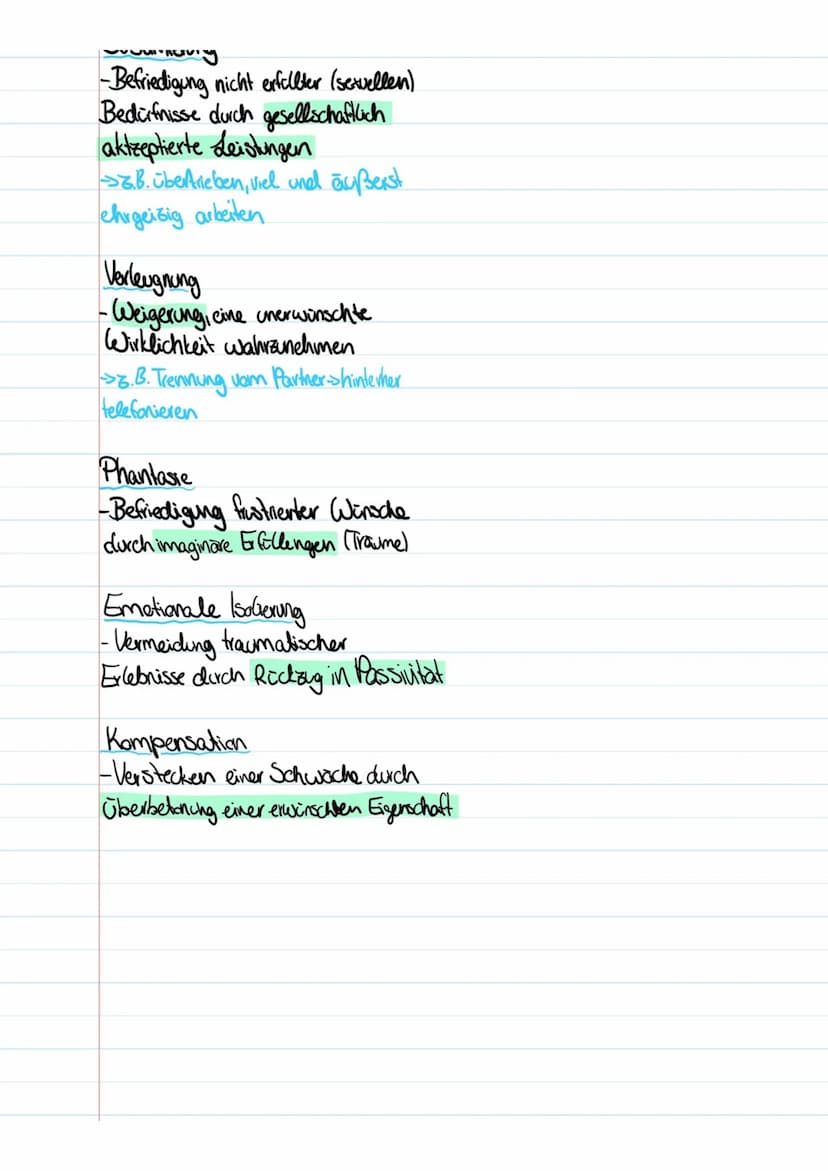 -Befriedigung nicht erfüllter (sexuellen)
Bedürfnisse durch gesellschaftlich
aktzeptierte Leistungen
→z.B. übertrieben, viel und äußerst
ehrgeizig arbeiten
Verleugnung
- Weigerung, eine unerwünschte
Wirklichkeit wahrzunehmen
→z.B. Trennung vom Partner→hinterher
telefonieren
Phantasie
-Befriedigung frustrierter Wünsche
durch imaginäre Erfüllungen (Träume)
Emotionale Isolierung
- Vermeidung traumatischer
Erlebnisse durch Rückzug in Passivität
Kompensation
-Verstecken einer Schwäche durch
Überbetonung einer erwünschten Eigenschaft